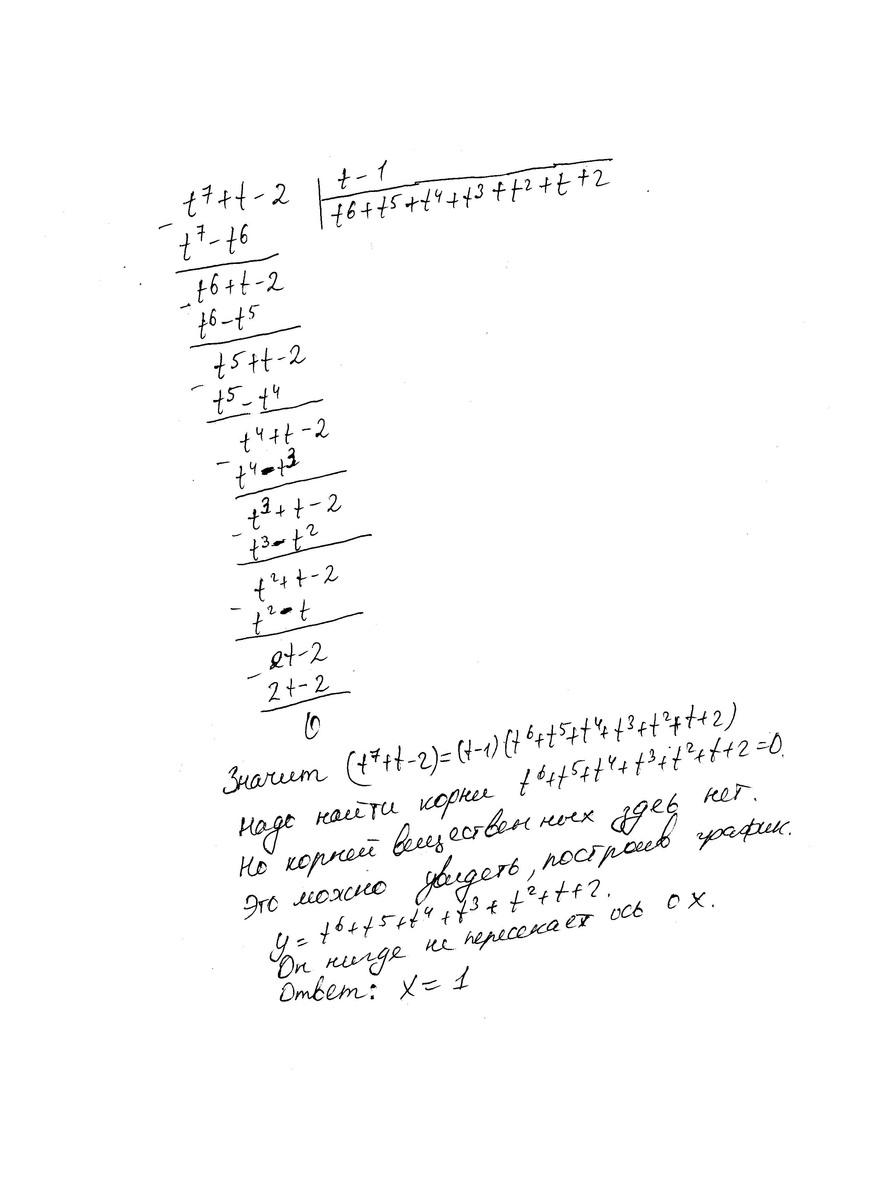 t⁷+t-2 | t-1
- t⁷-t⁶ | t⁶+t⁵+t⁴+t³+t²+t+2
t⁶+t-2
- t⁶-t⁵
t⁵+t-2
- t⁵-t⁴
t⁴+t-2
- t⁴-t³
t³+t-2
- t³-t²
t²+t-2
- t²-t
2t-2
- 2t-2
0
Значит (t⁷+t-2)=(t-1)(t⁶+t⁵+t⁴+t³+t²+t+2)
Надо найти корни t⁶+t⁵+t⁴+t³+t²+t+2=0.
Но корней вещественных здеь нет.
Это можно увидеть, построив график.
y = t⁶+t⁵+t⁴+t³+t²+t+2.
Он нигде не пересекает ось ox.
Ответ: x=1